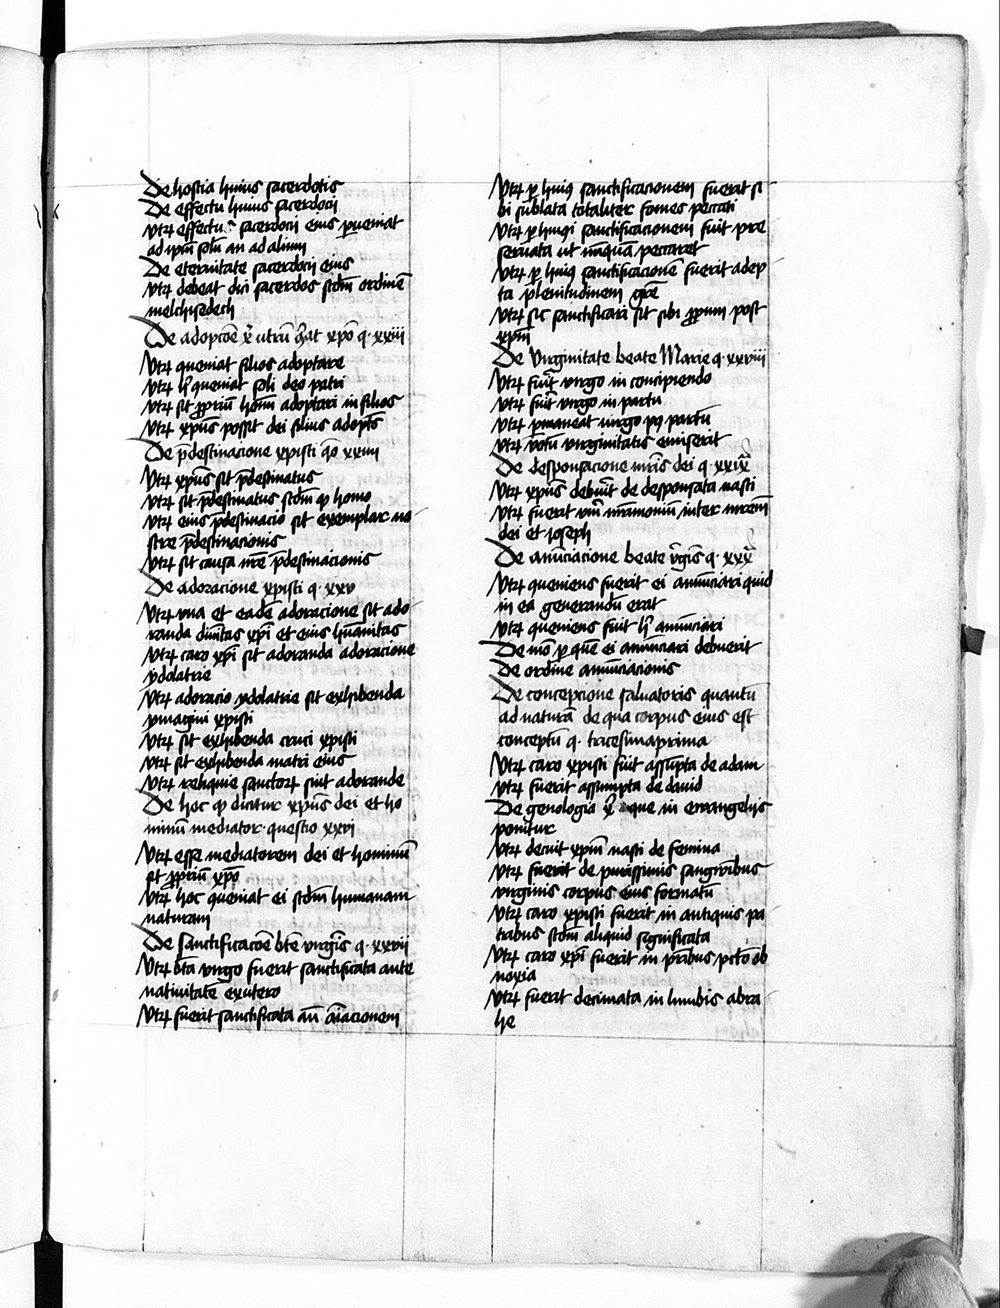 De hostia huius sacerdotis
De effectu huius sacerdocii
Utꝝ effectꝰ sacerdocii eius ꝑueniat
ad ip̄m solū an ad alium
De eternitate sacerdocii eius
Utꝝ debeat dici sacerdos scd̄m ordinē
melchisedech
De adopcōe xp̄i utrū ꝯueniat xpō q. xxiii
Utꝝ ꝯueniat filios adoptare
Utꝝ hͦ ꝯueniat soli deo patri
Utꝝ sit ꝓpriū hoīm adoptari in filios
Utꝝ xp̄us possit dici filius adoptꝰ
De p̄destinacione xpisti qō xxiiii
Utꝝ xp̄us sit p̄destinatus
Utꝝ sit p̄destinatus scd̄m ꝙ homo
Utꝝ eius p̄destinacio sit exemplar no
stre p̄destinacionis
Utꝝ sit causa nr̄e p̄destinacionis
De adoracione xpisti q. xxv
Utꝝ una et eadē adoracione sit ado
randa diuītas xp̄i et eius hūanitas
Utꝝ caro xp̄i sit adoranda adoracione
ydolatrie
Utꝝ adoracio ydolatrie sit exhibenda
ymagini xpisti
Utꝝ sit exhibenda cruci xpisti
Utꝝ sit exhibenda matri eius
Utꝝ reliquie sanctoꝝ sint adorande
De hoc ꝙ dicitur xp̄us dei et ho
minū mediator questio xxvi
Utꝝ esse mediatorem dei et hominū
sit ꝓpriū xpō
Utꝝ hoc ꝯueniat ei scd̄m humanam
naturam
De sanctificacōe btē virgīs q. xxvii
Utꝝ bt̄a virgo fuerit sanctificata ante
natiuitatē ex utero
Utꝝ fuerit sanctificata an̄ aīacionem
Utꝝ ꝑ huiꝰ sanctificacionem fuerit si
bi sublata totaliter fomes peccati
Utꝝ ꝑ huiꝰ sanctificacionem fuit pre
seruata ut nūquā peccaret
Utꝝ ꝑ huiꝰ sanctificacionē fuerit adep
ta plenitudinem grē
Utꝝ sic sanctificari sit sibi ꝓprium post
xp̄m
De Virginitate beate Marie q. xxviii
Utꝝ fuit virgo in concipiendo
Utꝝ fuit virgo in partu
Utꝝ ꝑmaneat virgo pꝰ partū
Utꝝ votū virginitatis emiserit
De desponsacione mr̄is dei q. xxix
Utꝝ xp̄us debuit de desponsata nasci
Utꝝ fuerit vm̄ mr̄imonium inter mr̄em
dei et ioseph
De anūciacione beate v̄gīs q. xxx
Utꝝ ꝯueniens fuerit ei annūciari quid
in ea generandū erat
Utꝝ ꝯueniens fuit hͦ annūciari
De mō ꝑ quē ei annūciari debuerit
De ordine annūciacionis
De concepcione saluatoris quantū
ad naturā de qua corpus eius est
conceptū q. tricesimaprima
Utꝝ caro xpisti fuit assūpta de adam
Utꝝ fuerit assumpta de dauid
De genologia xp̄i que in ewangeliis
ponitur
Utꝝ decuit xp̄um nasci de femina
Utꝝ fuerit de purissimis sangwībus
virginis corpus eius formatū
Utꝝ caro xpisti fuerit in antiquis pa
tribus scd̄m aliquid significata
Utꝝ caro xp̄i fuerit in pr̄ibus pctō ob
noxia
Utꝝ fuerit decimata in lumbis abra
he